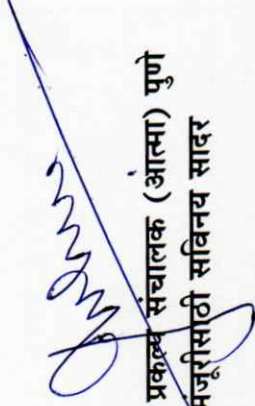 प्रकल्प संचालक (आत्मा) पुणे
मंजूरीसाठी सविनय सादर